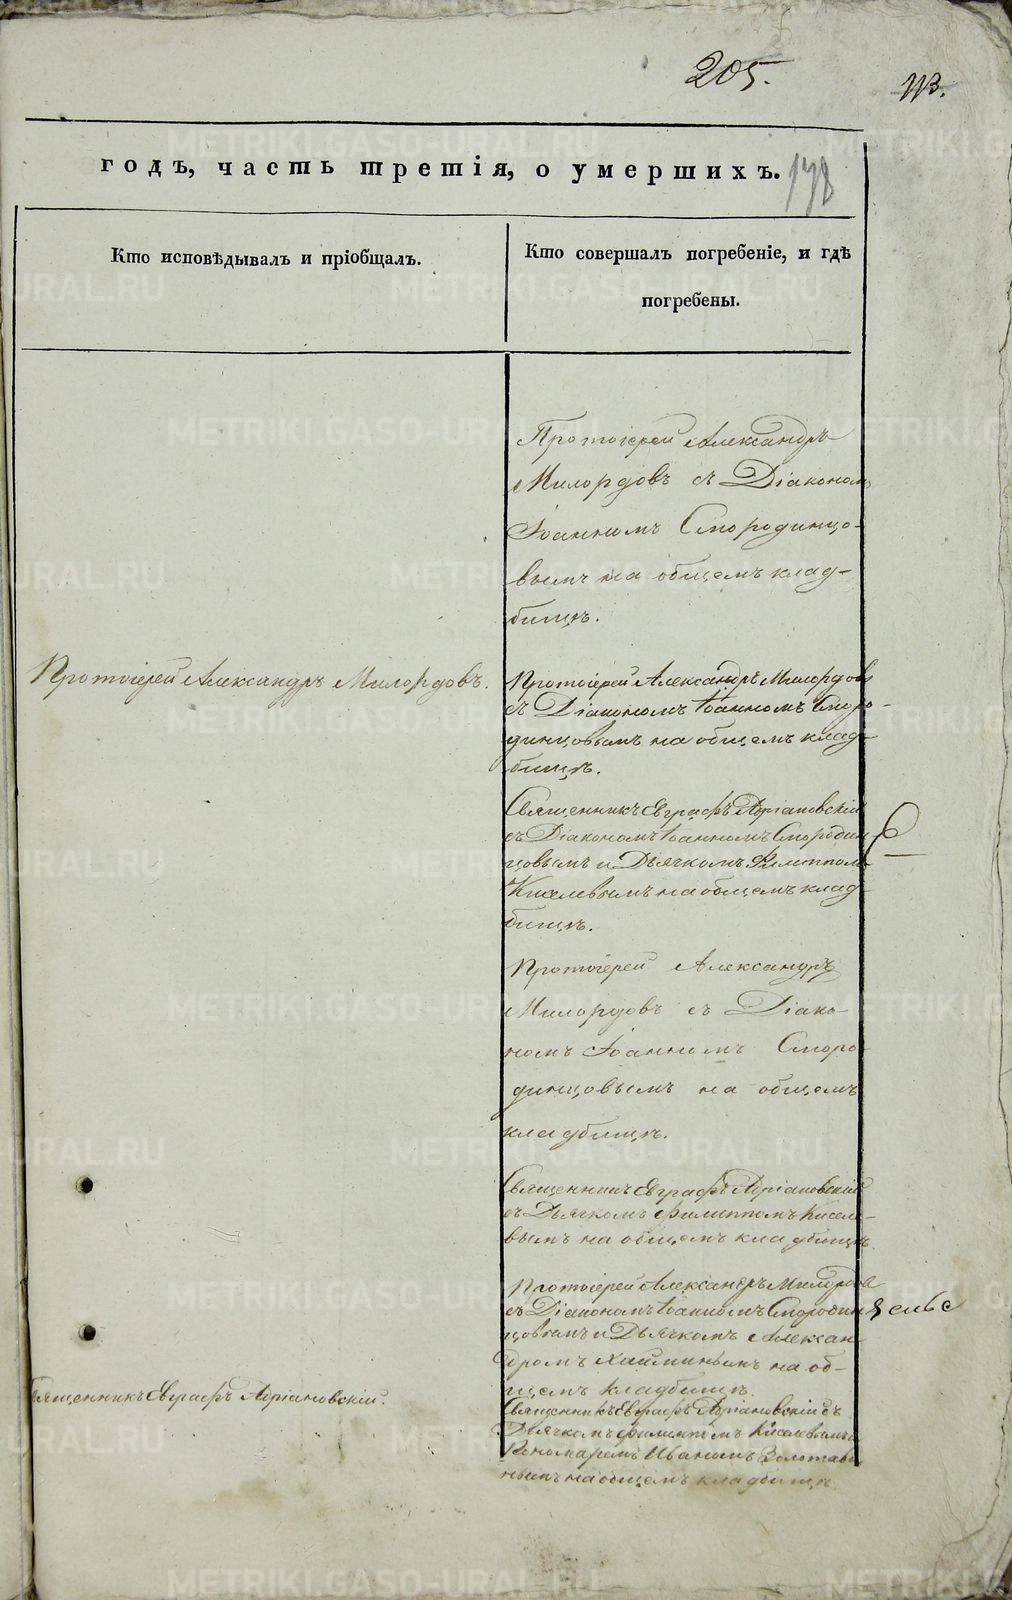 205.
113.
годъ, часть третія, о умершихъ.
178
Кто исповѣдывалъ и пріобщалъ.
Кто совершалъ погребеніе, и гдѣ
погребены.
Протоіерей Александръ
Милордовъ съ Діакономъ
Іоанномъ Смородинцо-
вымъ на общемъ клад-
бищѣ.
Протоіерей Александръ Милордовъ.
Протоіерей Александръ Милордовъ
съ Діакономъ Іоанномъ Сморо-
динцовымъ на общемъ клад-
бищѣ.
Священникъ Евграфъ Адріановскій
съ Діакономъ Іоанномъ Смородин-
цовымъ и Дьячкомъ Филиппомъ
Киселевымъ на общемъ клад-
бищѣ.
Протоіерей Александръ
Милордовъ съ Діако-
номъ Іоанномъ Сморо-
динцовымъ на общемъ
кладбищѣ.
Священникъ Евграфъ Адріановскій
съ Дьячкомъ Филиппомъ Кисел-
вымъ на общемъ кладбищѣ.
Протоіерей Александръ Милордовъ
съ Діакономъ Іоанномъ Смородин
цовымъ и Дьячкомъ Алексан-
дромъ на об-
щемъ кладбищѣ.
Священникъ Евграфъ Адріановскій.
Священникъ Евграфъ Адріановскій съ
Дьячкомъ Филиппомъ Киселевымъ и
Пономаремъ Иваномъ
на общемъ кладбищѣ
METRIKI.GASO-URAL.RU